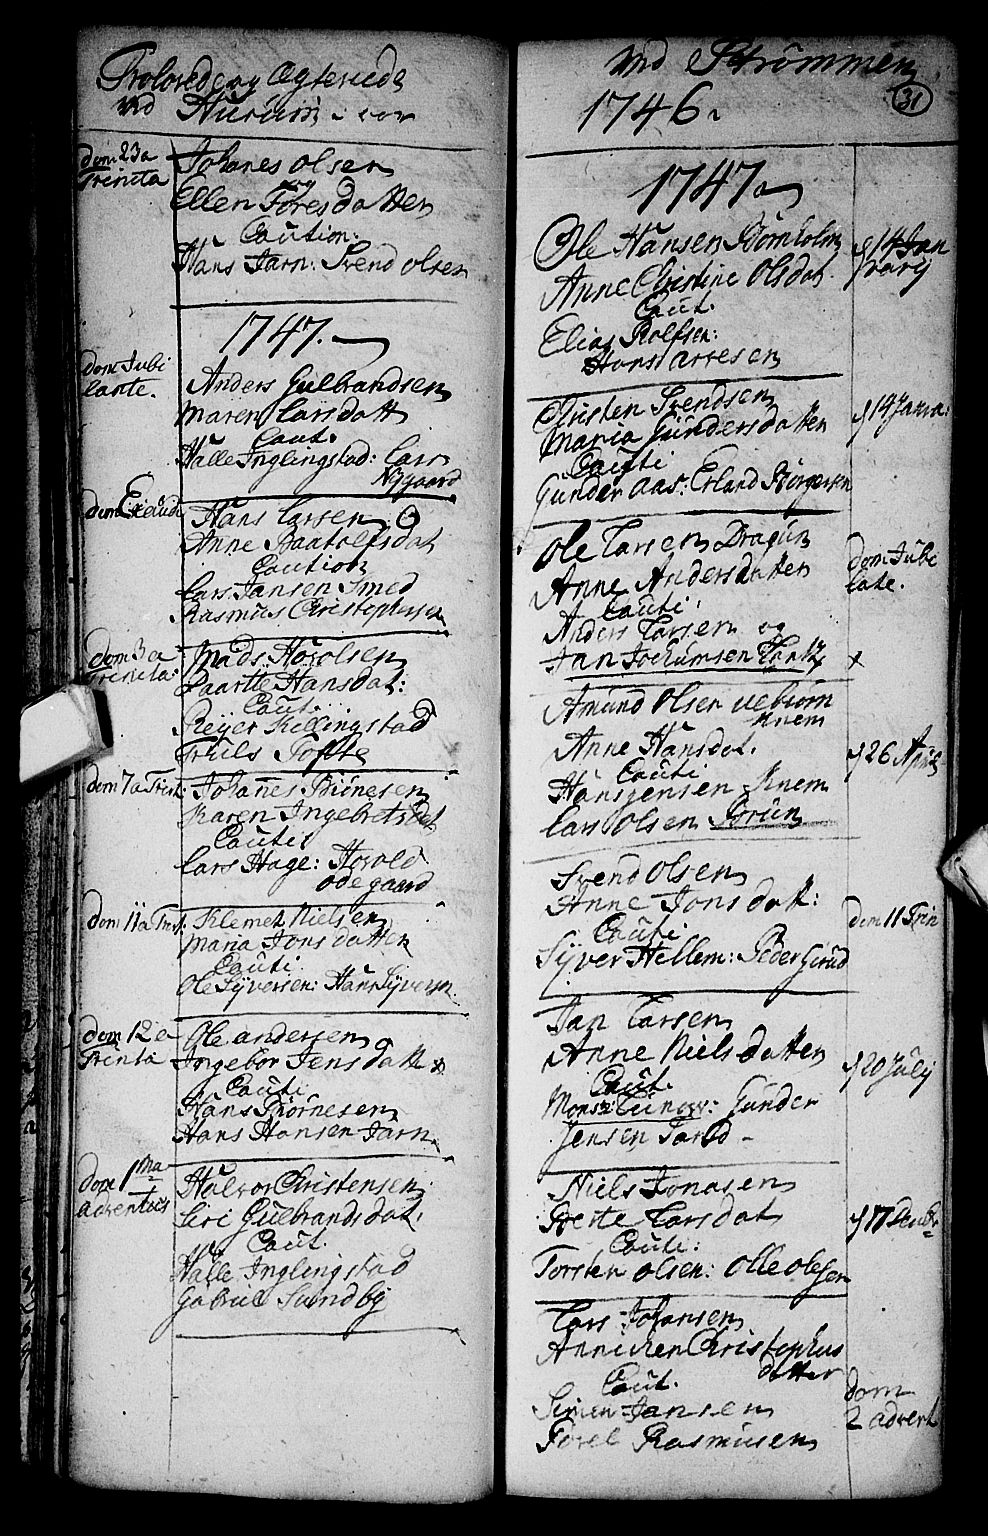 Trolovede og Egteviede
ved Hurum
dom 23 a
Trinita
Johanes Olsen
Ellen Toresdatter
Caution:
Hans Jarn: Svend Olsen
1747.
dom Jubi
lante.
Anders Gulbrandsen
Maren Larsdatt
Caut.
Halle Inglingstad: Lars
Nygaard
dom Exaudi
Hans Larsen
Anne
Caution
Lars Jansen Smed
Rasmus Christophersen
dom 3 a
Trinita:
Mads Hovolsen
Hansdat:
Caut.
Reyer Killingstad
Truls Tofte
dom 7 a Trinit:
Johannes Biönesen
Karen Ingebretsdat
Cauti:
Lars Hage: Hovold
Ødegaard
dom 11 a Trit.
Klemet Nielsen
Maria Jonsdatter
Cauti.
Ole Syversen: Hans Syversen.
dom 12 a
Trinta
Ole Andersen
Ingebor Jensdatter
Cauti
Hans Biörnesen
Hans Hansen Jarn.
dom 1 ma
adventus
Halvor Christensen
Siri Gulbrandsdat.
Caut.
Halle Inglingstad
Gabriel Sundby
ved Strömmen
31
1746.
1747
Ole Hansen Bornholm
Anne Christine Olsdat.
Caut.
Elias Rolfsen:
Hans Arresen
d 14 Jan
varij
Christen Svendsen
Maria Gundersdatter
Cauti
Gunder Aas: Erland Börgersen
d 14 Janua:
Ole Larsen Dragun
Anne Andersdatter
Cauti
Anders Larsen og
Jan Jochumsen
dom Jubi
late.
x
Amund Olsen
Knem
Anne Hansdat.
Cauti
Hans Jensen Knem
Lars Olsen Brun
d 26 April
Svend Olsen
Anne Jonsdatt:
Cauti.
Syver Hellem: Peder Gerud
dom 11 Trin
Jan Larsen
Anne Nielsdatter
Caut.
Monsr: Gunder
Jensen
d 20 Julij
Niels Jonasen
Berte Larsdat
Cauti:
Torsten Olsen: Olle Olesen
d 17
Lars Johansen
Annichen Christophers
datter
Caut.
Simen Jansen
Torel Rasmusen
dom
2 advent